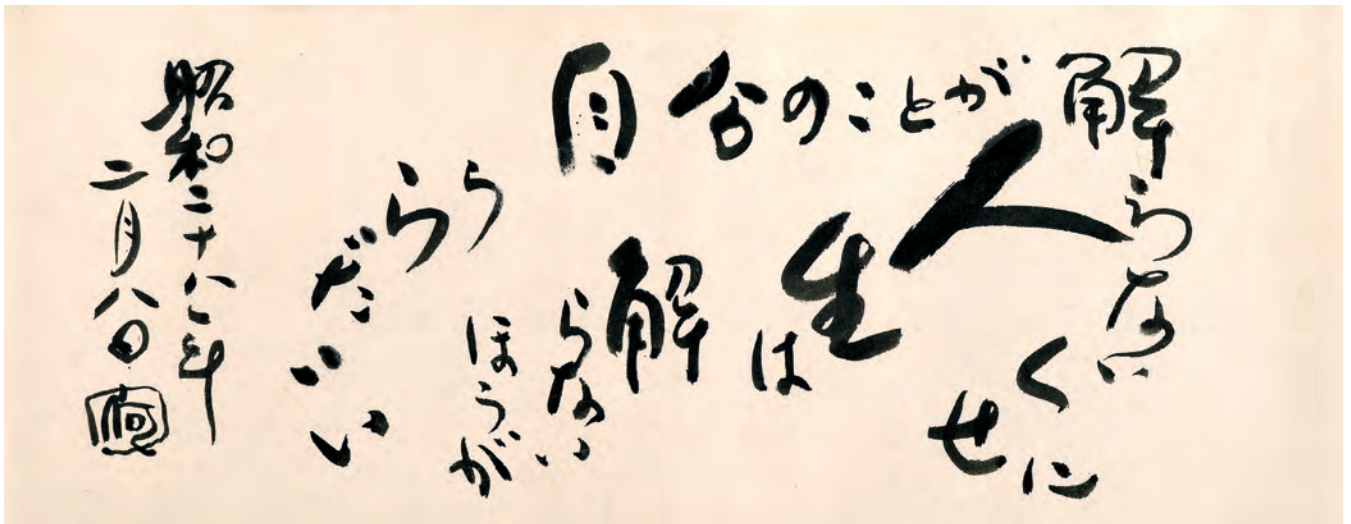 自分のことが解
らない
くせに
人生は
解らない
ほうが
いいだろう
昭和二十八年
二月八日